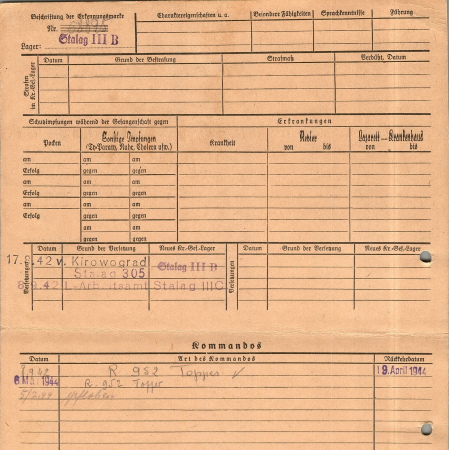 Beschriftung der Erkennungsmarke
Nr.
Lager: Stalag III B
Charaktereigenschaften u. a.
Besondere Fähigkeiten
Sprachkenntnisse
Führung
Strafen im Kr.-Gef.-Lager
Datum Grund der Bestrafung Strafmaß Verbüßt, Datum
Schutzimpfungen während der Gefangenschaft gegen
Erkrankungen
Pocken
Sonstige Impfungen
(Ty-Paratyph. Ruhr, Cholera usw.)
Krankheit
Revier
von bis
Lazarett — Krankenhaus
von bis
am am am
Erfolg gegen gegen
am am am
Erfolg gegen gegen
am am am
Erfolg gegen gegen
am am am
gegen gegen
am am
gegen gegen
Versetzungen
Datum Grund der Versetzung Neues Kr.-Gef.-Lager
Versetzungen
Datum Grund der Versetzung Neues Kr.-Gef.-Lager
.42 v. Kirowograd
Stalag 305
Stalag III B
.42 Arbeitsamt Stalag IIIC
Kommandos
Datum Art des Kommandos Rückkehrdatum
R 952 19. April 1944
1944 R. 952